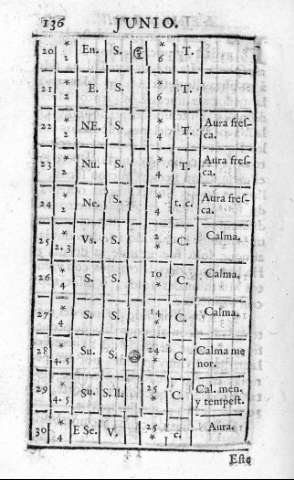 136 JUNIO.
20 * 2 En. S. * 6 T.
21 * 2 E. S. * 6 T.
22 * 2 NE. S. * 4 T. Aura fres-
ca.
23 * 2 Nu. S. * 4 T. Aura fres-
ca.
24 * 2 Ne. S. * 4 t. c. Aura fres-
ca.
25 * 2. 3 Vs. S. 2 * C. Calma.
26 * 4 S. S. 10 * C. Calma.
27 * 4 S. S. 14 * C. Calma.
28 * 4. 5 Su. S. 24 * C. Calma me
nor.
29 * 4. 5 Su. S. ll. 25 * C. Cal. men.
y tempest.
30 * 4 E Se. V. 25 * c. Aura.
Este